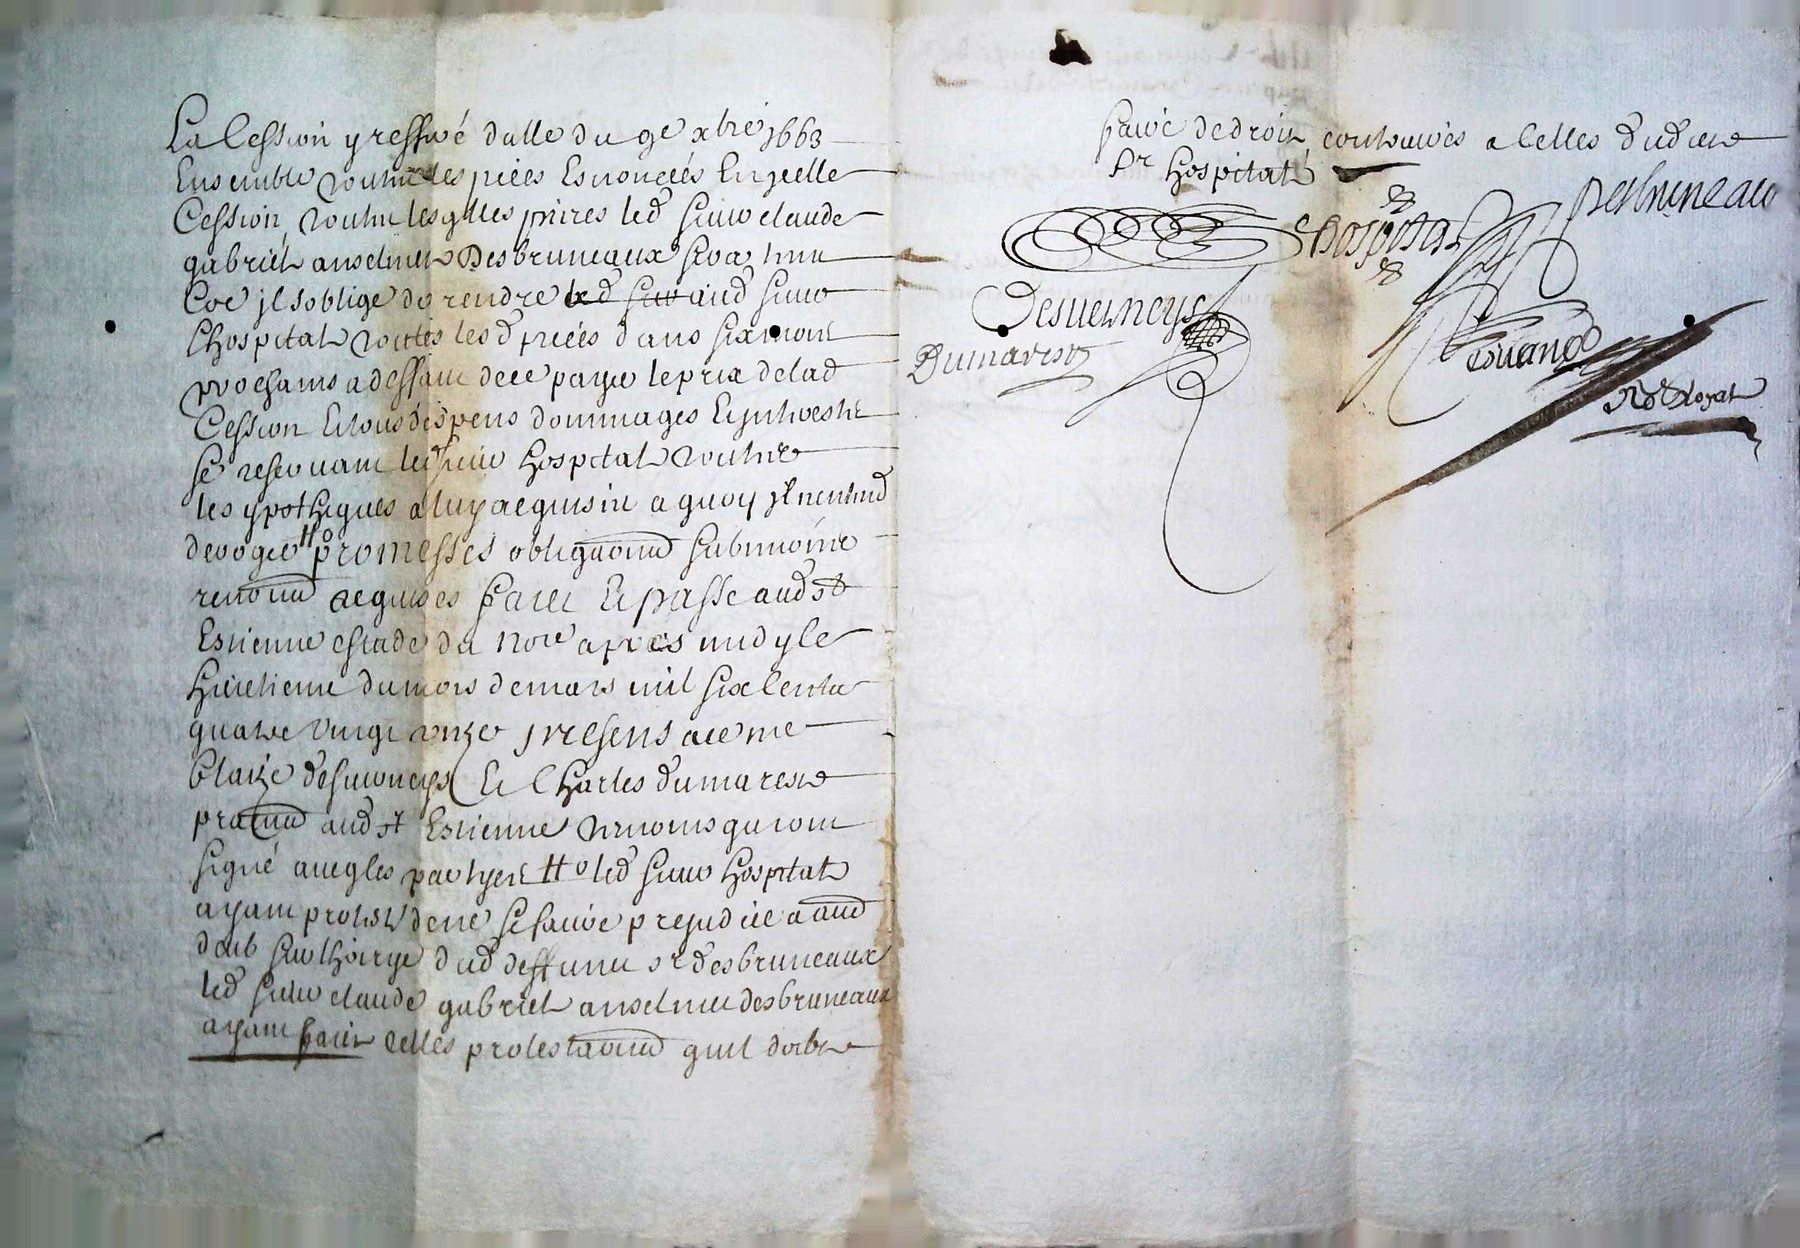 La Cession y ressuë datte du 9e xbre 1663
Ensemble toutes les pieces Enoncées En jcelle
Cession, toutes lesqlles pieces led sieur claude
gabriel anselme Desbruneaux
il s'oblige de rendre led sieur aud sieur
Lhospital toutes lesd pieces dans six mois
prochains a deffaut de ce payer le prix de lad
Cession Et tous despens dommages Et jnterests
se reservant led sieur hospital toutes
les ypotheques a luy acquises a quoy jl nentend
deroger Ho promesses obligaons submions
renons acquises fait Et passé aud st
Estienne estude du nore apres midy le
huictieme du mois de mars mil six cents
quatre vingt onze presens a ce me
blaize desverneys Et Charles dumarest
pratn aud st Estienne tesmoins qui ont
signé avec les parties Ho led sieur hospital
ayant protesté de ne se faire prejudice a aud
deub sur dud deffunct sr desbruneaux
led sieur claude gabriel anselme desbruneaux
ayant fait telles protestaons quil doibt
sauf de droit contraires a Celles dud
Sr hospital
desbruneau
Lhospital
Desverneys
Dumarest
Not Royal